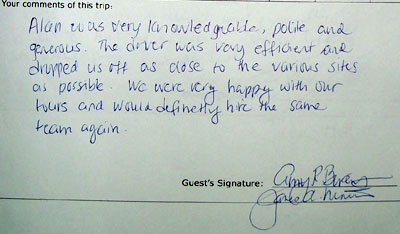 Your comments of this trip:
Alan was very knowledgeable, polite and
generous. The driver was very efficient and
dropped us off as close to the various sites
as possible. We were very happy with our
tours and would definetly hire the same
team again.
Guest's Signature: